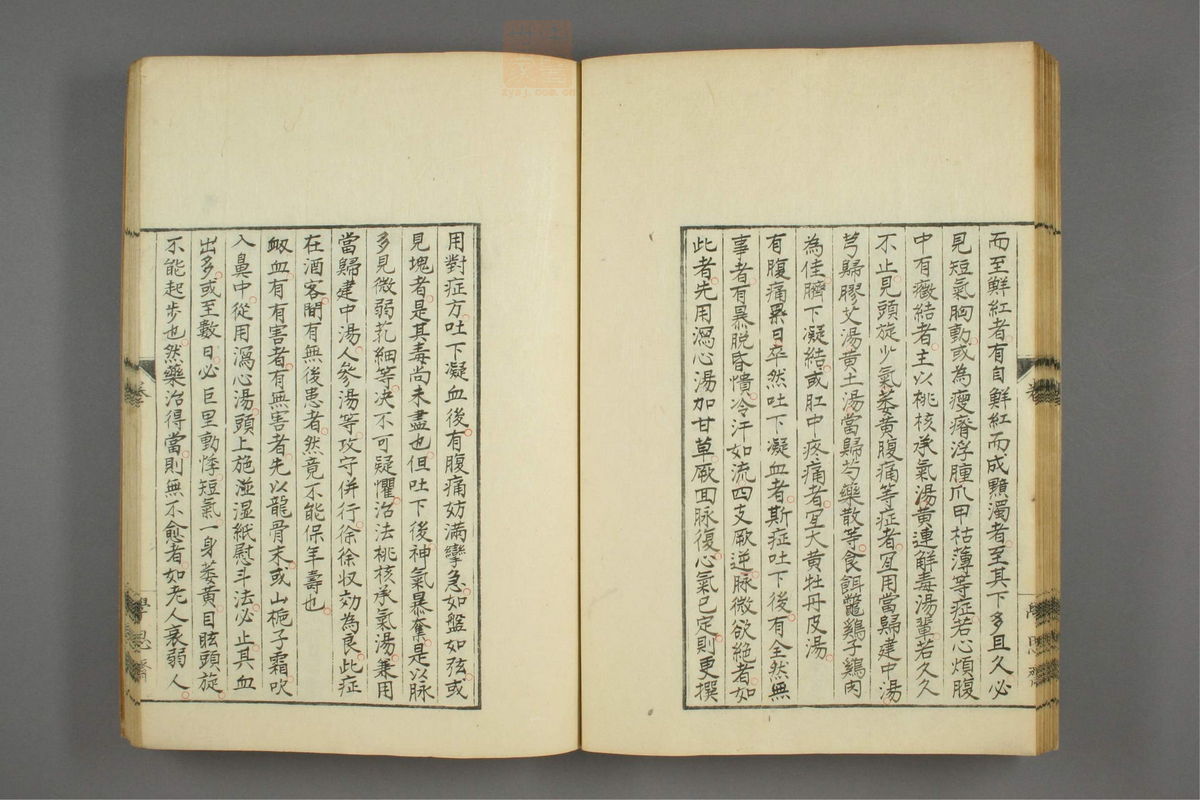 而至鮮紅者有自鮮紅而成黯濁者至其下多且久必
見短氣胸動或為瘦瘠浮腫爪甲枯薄等症若心煩腹
中有癥結者主以桃核承氣湯黃連解毒湯輩若久久
不止見頭旋少氣萎黃腹痛等症者宜用當歸建中湯
芎歸膠艾湯黃土湯當歸芍藥散等食餌鼈鷄子鷄肉
為佳臍下凝結或肛中疼痛者宜大黃牡丹皮湯
有腹痛累日卒然吐下凝血者斯症吐下後有全然無
事者有暴脫昏憒冷汗如流四支厥逆脉微欲絕者如
此者先用瀉心湯加甘草厥回脉復心氣已定則更撰
用對症方吐下凝血後有腹痛妨滿攣急如盤如弦或
見塊者是其毒尚未盡也但吐下後神氣暴奪是以脉
多見微弱芤細等决不可疑懼治法桃核承氣湯兼用
當歸建中湯人參湯等攻守併行徐徐收効為良此症
在酒客間有無後患者然竟不能保年壽也
衂血有有害者有無害者先以龍骨末或山梔子霜吹
入鼻中從用瀉心湯頭上施湴湿紙慰斗法必止其血
出多或至數日必巨里動悸短氣一身萎黃目眩頭旋
不能起步也然藥治得當則無不愈者如老人衰弱人
卷
學思齋
zysj.com.cn